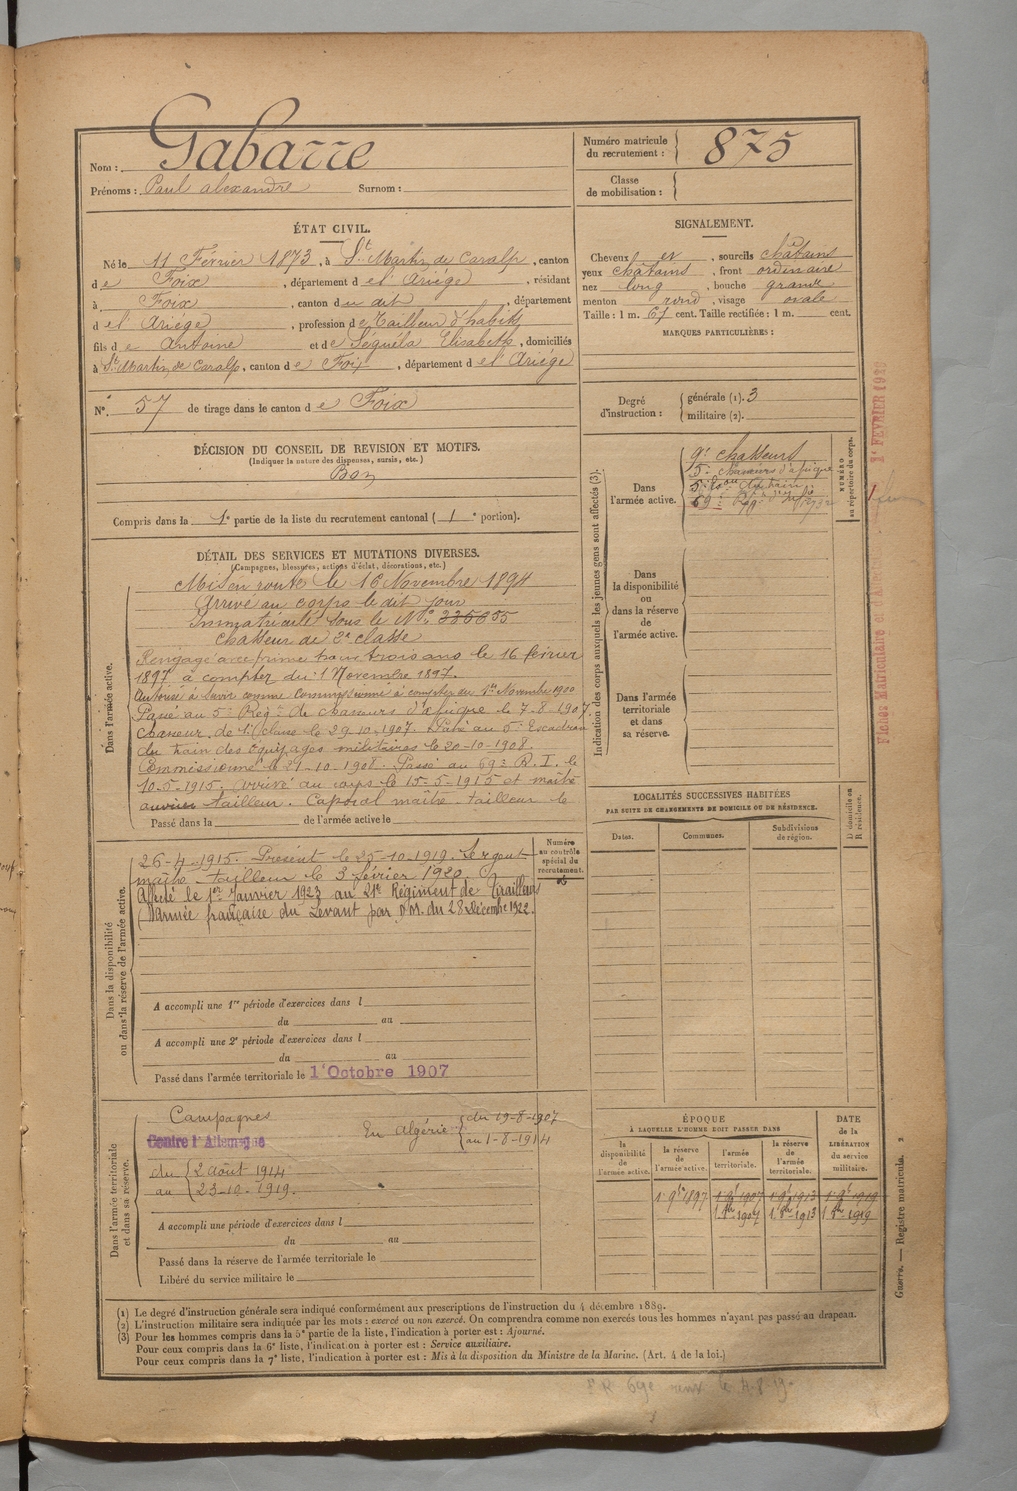 Nom : Gabarre
Prénoms : Paul alexandre Surnom :
Numéro matricule du recrutement : 875
Classe de mobilisation :
ÉTAT CIVIL.
Né le 11 Février 1873, à St Martin de Caralp, canton
de Foix, département de l'Ariége, résidant
à Foix, canton du dit, département
de l'Ariége, profession de Tailleur d'habits
fils de Antoine et de Séguéla Elisabeth, domiciliés
à St Martin de Caralp, canton de Foix, département de l'Ariége
N° 57 de tirage dans le canton de Foix
SIGNALEMENT.
Cheveux et, sourcils châtains
yeux châtains, front ordinaire
nez long, bouche grande
menton rond, visage ovale
Taille : 1 m. 67 cent. Taille rectifiée : 1 m. cent.
MARQUES PARTICULIÈRES :
Degré d'instruction : générale (1). 3
militaire (2).
DÉCISION DU CONSEIL DE REVISION ET MOTIFS.
(Indiquer la nature des dispenses, sursis, etc.)
Bon
Compris dans la 1e partie de la liste du recrutement cantonal ( 1e portion).
Indication des corps auxquels les jeunes gens sont affectés (3).
NUMÉRO au répertoire du corps.
Dans l'armée active.
9e chasseurs
5e chasseurs d'afrique
Dans la disponibilité ou dans la réserve de l'armée active.
Dans l'armée territoriale et dans sa réserve.
DÉTAIL DES SERVICES ET MUTATIONS DIVERSES.
(Campagnes, blessures, actions d'éclat, décorations, etc.)
Dans l'armée active.
Mis en route le 16 Novembre 1894
Arrivé au corps le dit jour
Immatriculé sous le N°
chasseur de 2e classe
Rengagé avec prime pour trois ans le 16 février
1897 à compter du 1 Novembre 1897.
Autorisé à servir comme commissionné à compter du 1er Novembre 1900
Passé au 5e Régt de chasseurs d'afrique le 7-8-1907.
chasseur de 1e classe le 29-10-1907. Passé au 5e Escadron
du train des équipages militaires le 20-10-1908.
Commissionné le 21-10-1908. Passé au 69e R. I. le
10-5-1915. arrivé au corps le 15-5-1915 et maître
ouvrier tailleur. Caporal maître tailleur le
Passé dans la de l'armée active le
Numéro au contrôle spécial du recrutement.
Dans la disponibilité ou dans la réserve de l'armée active.
26-4-1915. Présent le 25-10-1919. Sergent
maître tailleur le 3 février 1920.
Affecté le 1er Janvier 1923 au 21e Régiment de Tirailleurs
(Armée française du Levant par DM. du 28 Décembre 1922.
A accompli une 1re période d'exercices dans l
du au
A accompli une 2e période d'exercices dans l
du au
Passé dans l'armée territoriale le 1 Octobre 1907
LOCALITÉS SUCCESSIVES HABITÉES
PAR SUITE DE CHANGEMENTS DE DOMICILE OU DE RÉSIDENCE.
Dates. Communes. Subdivisions de région. D domicile ou R résidence.
Dans l'armée territoriale et dans sa réserve.
Campagnes
Contre l'Allemagne
En Algérie du 19-8-1907
au 1-8-1914
du 2 août 1914
au 23-10-1919.
A accompli une période d'exercices dans l
du au
Passé dans la réserve de l'armée territoriale le
Libéré du service militaire le
ÉPOQUE
À LAQUELLE L'HOMME DOIT PASSER DANS
la disponibilité de l'armée active. la réserve de l'armée active. l'armée territoriale. la réserve de l'armée territoriale.
DATE de la LIBÉRATION du service militaire.
(1) Le degré d'instruction générale sera indiqué conformément aux prescriptions de l'instruction du 4 décembre 1889.
(2) L'instruction militaire sera indiquée par les mots : exercé ou non exercé. On comprendra comme non exercés tous les hommes n'ayant pas passé au drapeau.
(3) Pour les hommes compris dans la 5e partie de la liste, l'indication à porter est : Ajourné.
Pour ceux compris dans la 6e liste, l'indication à porter est : Service auxiliaire.
Pour ceux compris dans la 7e liste, l'indication à porter est : Mis à la disposition du Ministre de la Marine. (Art. 4 de la loi.)
Guerre. — Registre matricule. 2